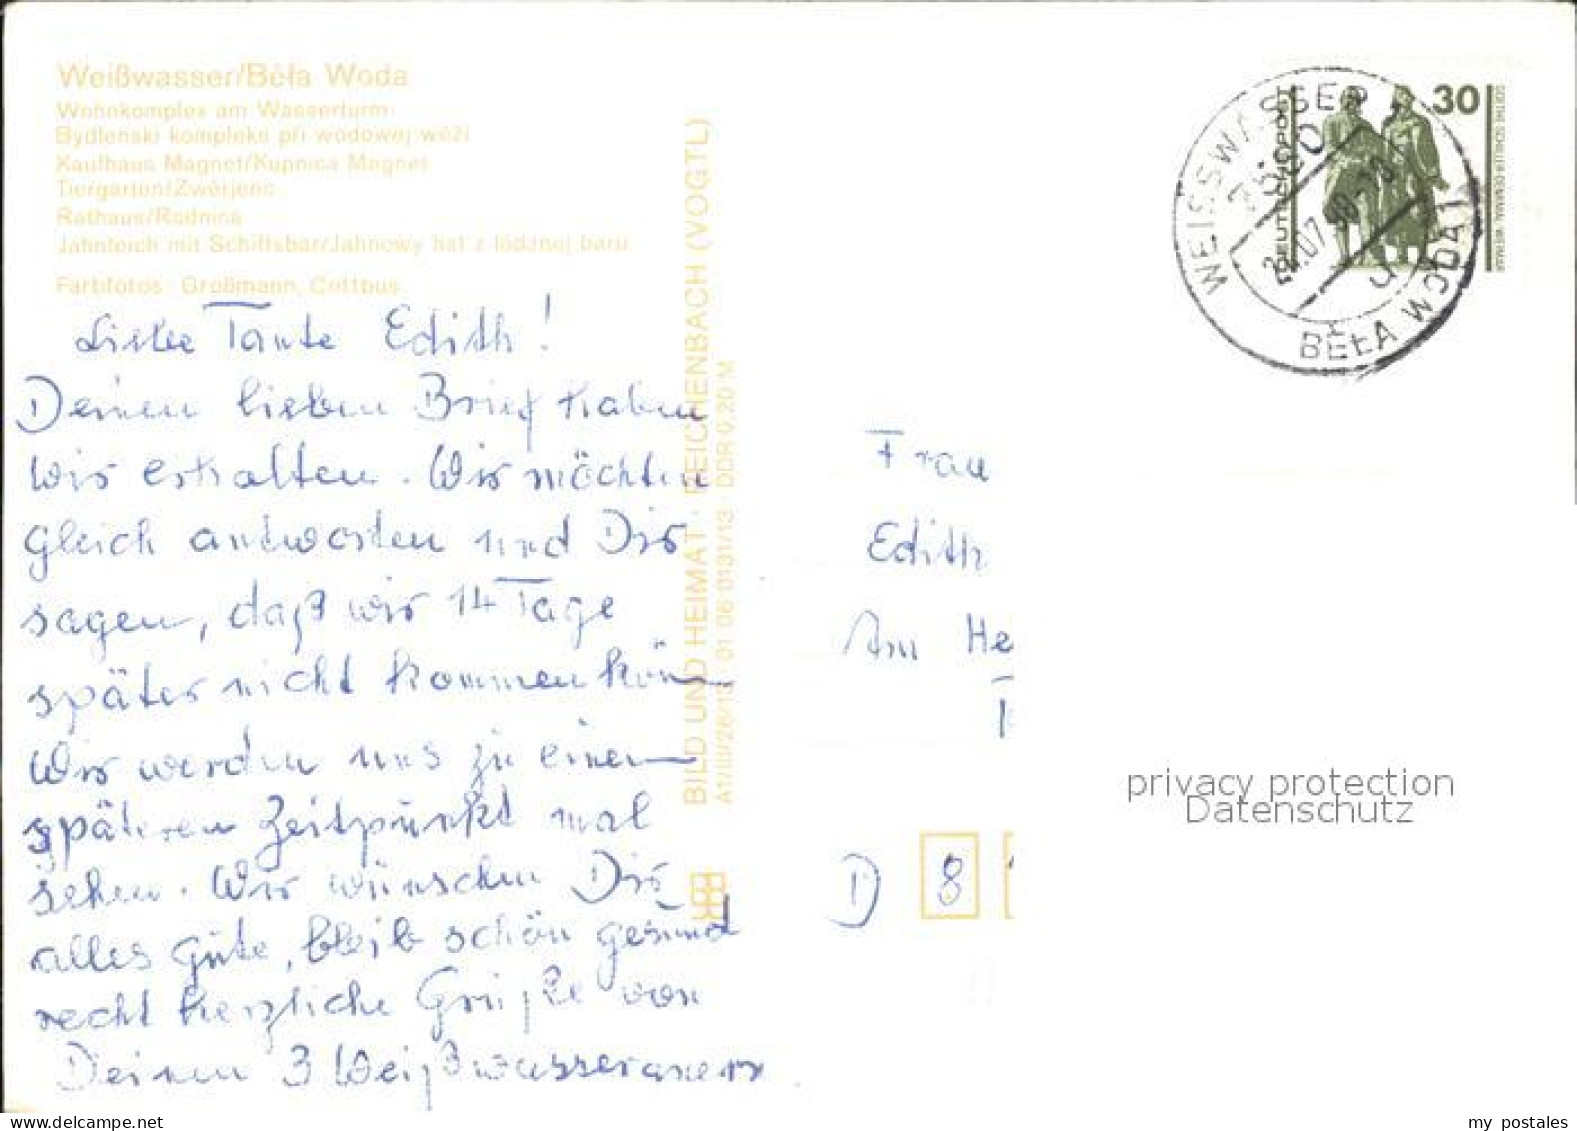 Weißwasser/Běła Woda
Wohnkomplex am Wasserturm
Bydlenski kompleks při wodowej wěži
Kaufhaus Magnet/Kupnica Magnet
Tiergarten/Zwěrjenc
Rathaus/Radnica
Jahnteich mit Schiffsbar/Jahnowy hat z łódźnuj baru
Farbfotos: Großmann, Cottbus
Liebe Tante Edith!
Deinen lieben Brief haben
wir erhalten. Wir möchten
gleich antworten und Dir
sagen, daß wir 14 Tage
später nicht kommen kön
Wir werden uns zu einem
späteren Zeitpunkt mal
sehen. Wir wünschen Dir
alles Gute, bleib schön gesund
recht herzliche Grüße von
Deinen 3 Weißwasseranern
BILD UND HEIMAT · REICHENBACH (VOGTL)
A1/III/26/13 · 01 06 0131/13 · DDR 0,20 M
WEISSWASSER 1
7580
07.90
BĚŁA WODA 1
30
DEUTSCHE POST
GOETHE-SCHILLER-DENKMAL WEIMAR
Frau
Edith
Am He
D 8
privacy protection
Datenschutz
my postales